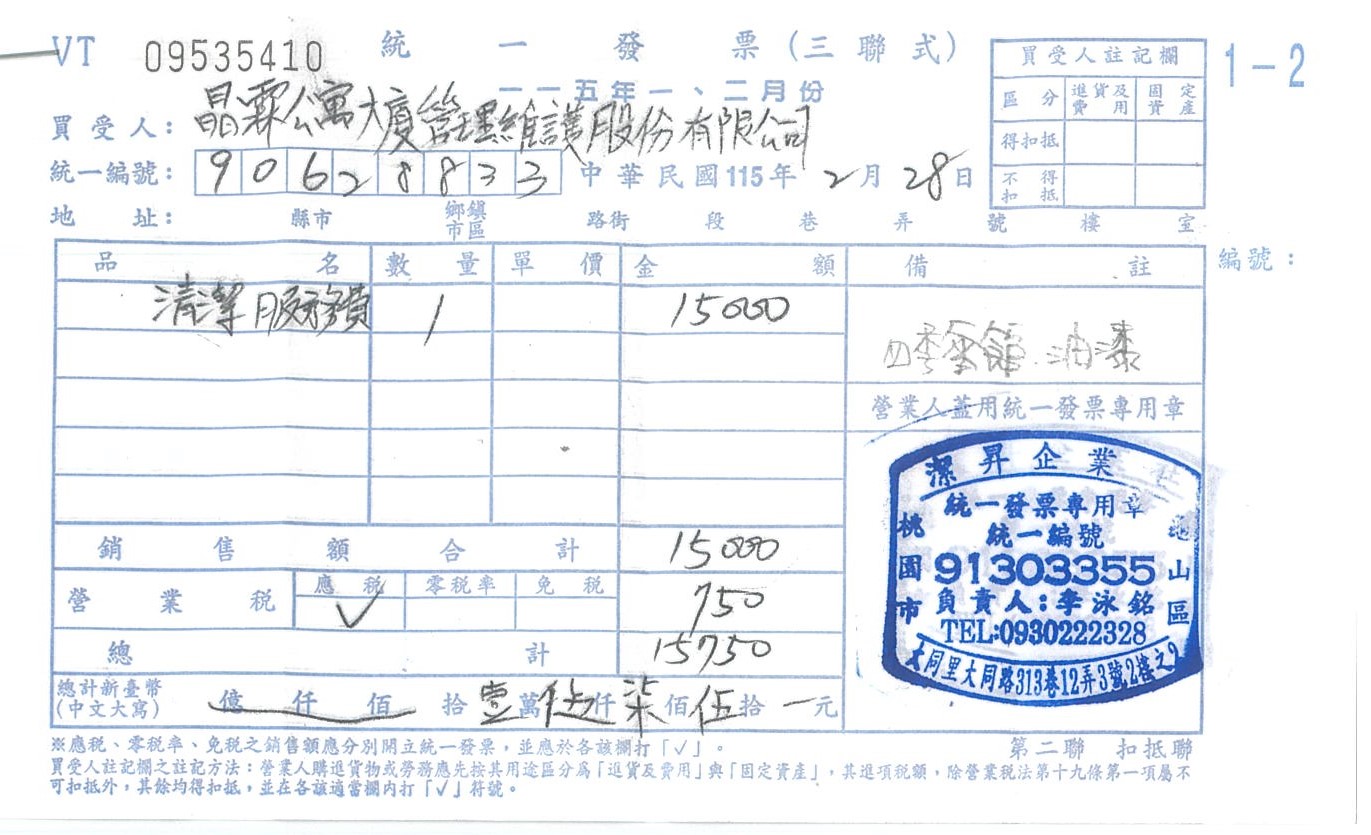 VT 09535410 統一發票(三聯式) 1-2
一一五年一、二月份
買受人: 晶霖公寓大廈管理維護股份有限公司
統一編號: 90628833 中華民國115年2月28日
地址: 縣市 鄉鎮市區 路街 段 巷 弄 號 樓 室
買受人註記欄
區分 進貨及費用 固定資產
得扣抵
不得扣抵
品名 數量 單價 金額 備註 編號:
清潔服務費 1 15000
四季會館 油漆
營業人蓋用統一發票專用章
銷售額合計 15000
營業稅 應稅 ✓ 零稅率 免稅 750
總計 15750
總計新臺幣(中文大寫) 億 仟 佰 拾 壹萬 伍仟 柒佰 伍拾 元
潔昇企業社
統一發票專用章
統一編號
91303355
負責人:李泳銘
TEL:0930222328
桃園市 龜山區
大同里大同路313巷12弄3號2樓之9
※應稅、零稅率、免稅之銷售額應分別開立統一發票,並應於各該欄打「✓」。
第二聯 扣抵聯
買受人註記欄之註記方法:營業人購進貨物或勞務應先按其用途區分為「進貨及費用」與「固定資產」,其進項稅額,除營業稅法第十九條第一項屬不
可扣抵外,其餘均得扣抵,並在各該適當欄內打「✓」符號。